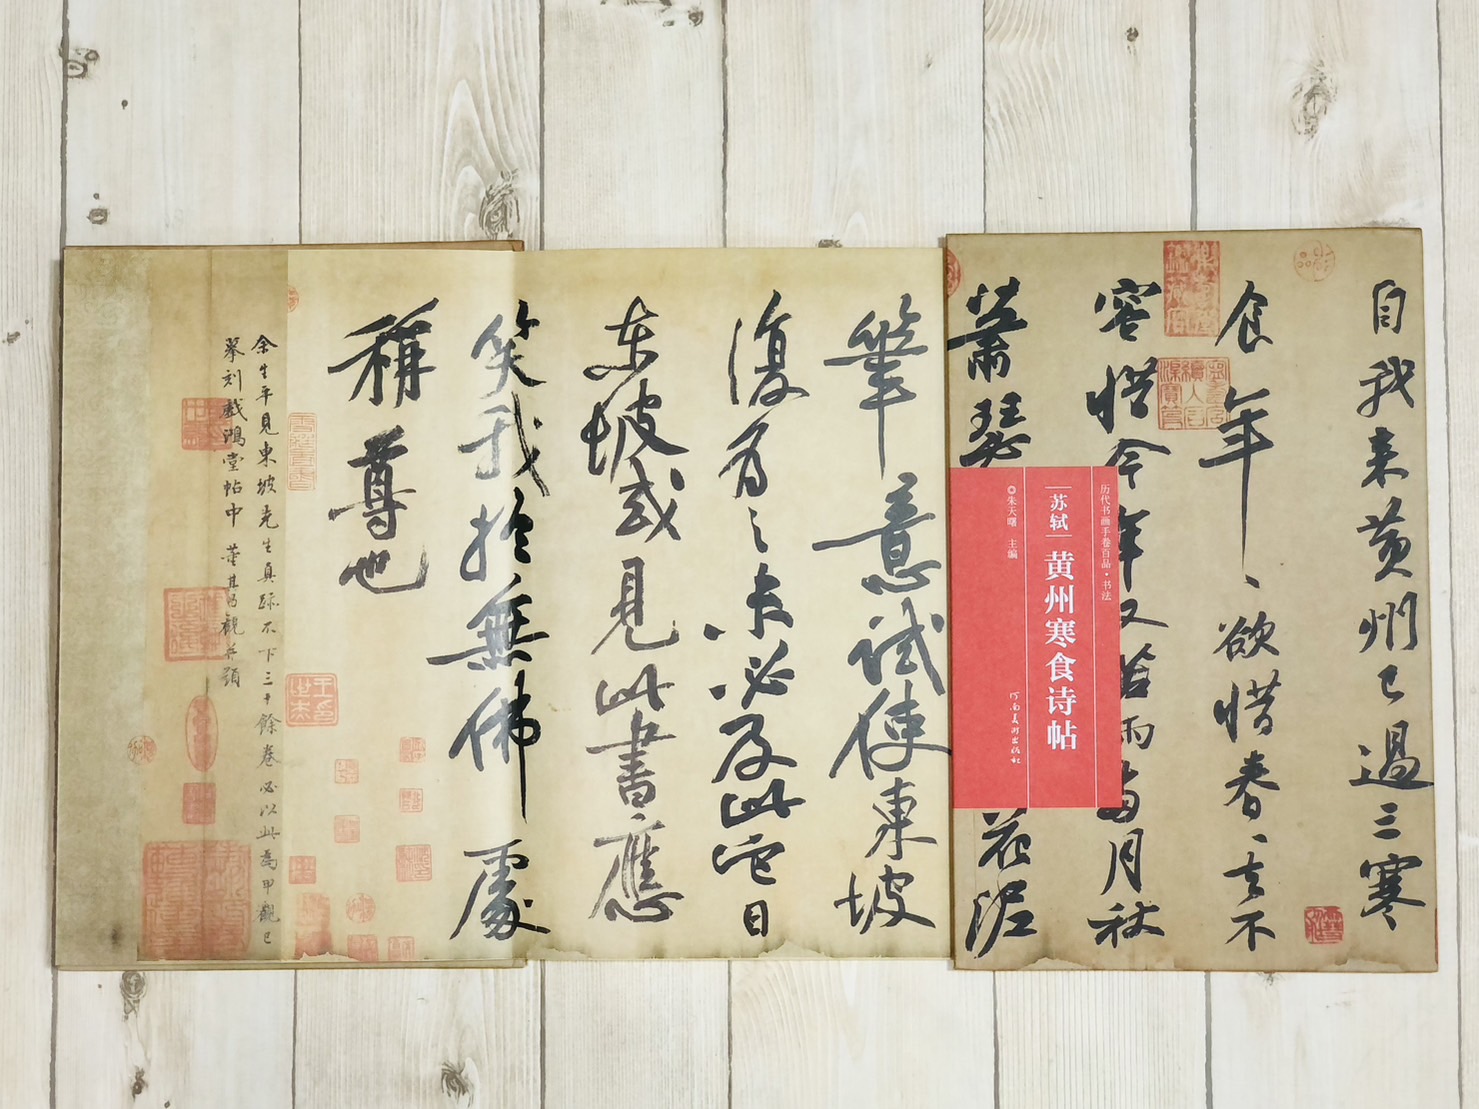 自我来黄州已過三寒
食年、、欲惜春、去不
容惜今年又苦雨兩月秋
蕭瑟
花泥
历代书画手卷百品·书法
苏轼 黄州寒食诗帖
◎朱天曙 主编
河南美术出版社
筆意試使東坡
復為之未必及此它日
东坡或見此書應
笑我於無佛處
稱尊也
余生平見東坡先生真跡不下三十餘卷必以此為甲觀已
摹刻戲鴻堂帖中 董其昌觀并題